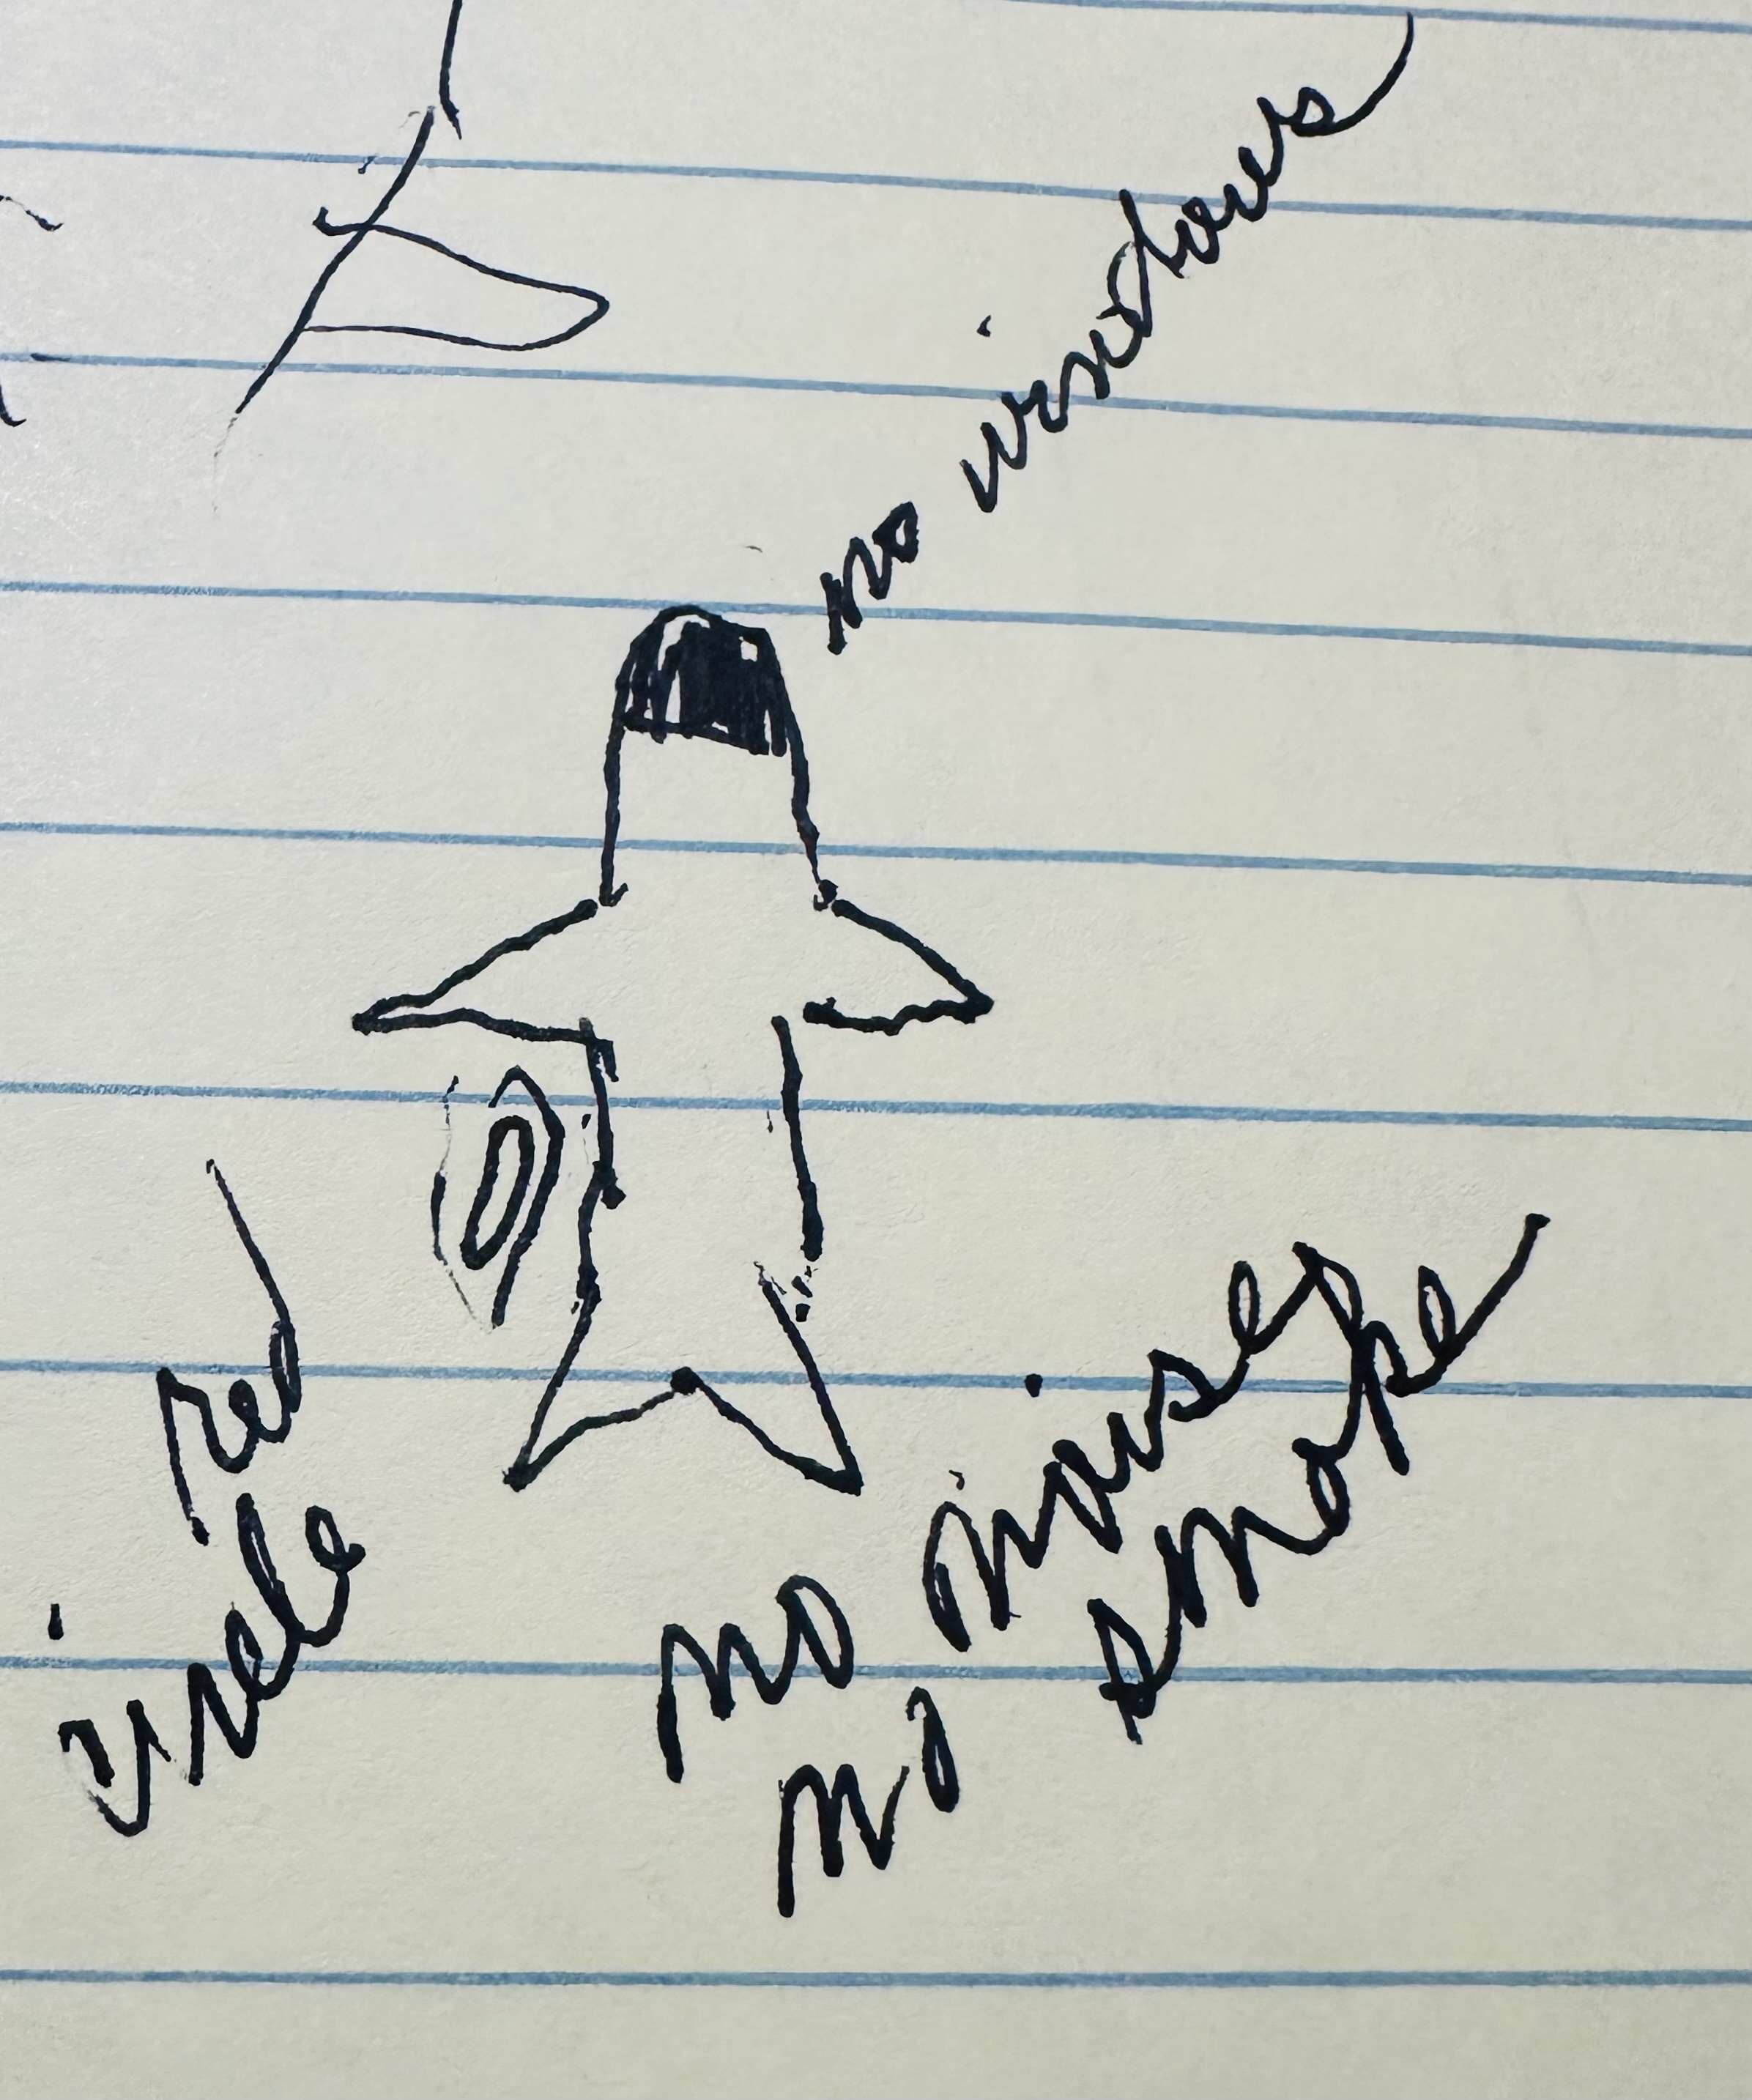 no windows
red
circle
no noise
no smoke